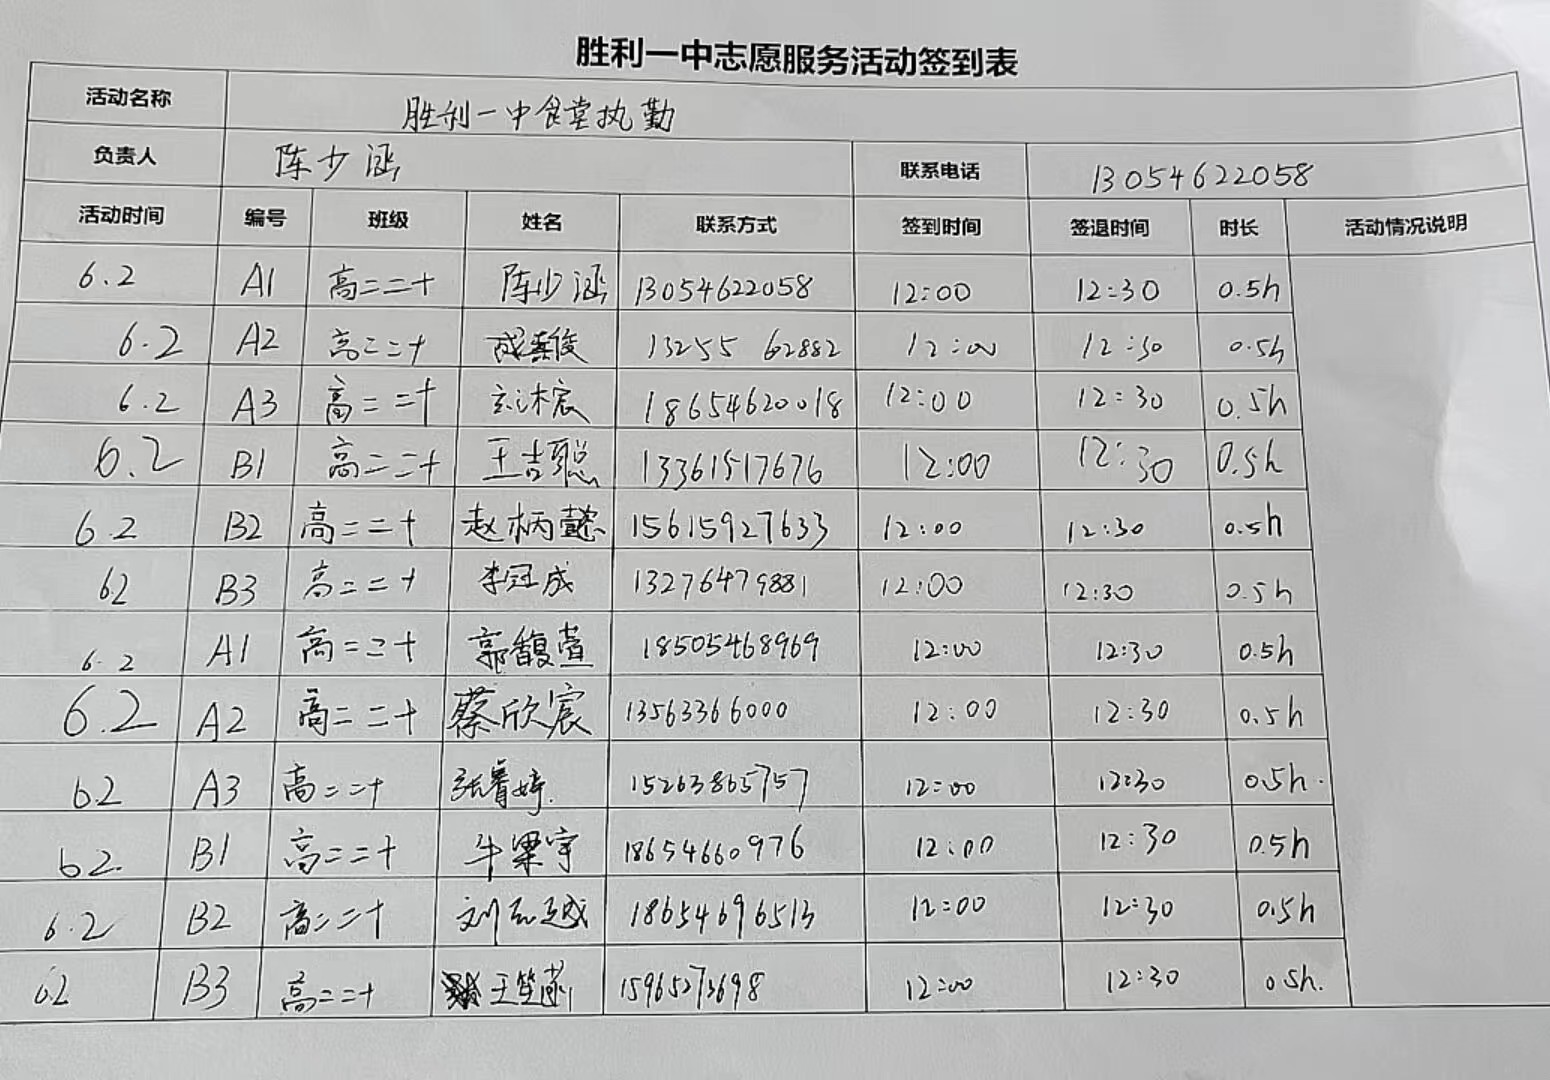 胜利一中志愿服务活动签到表
活动名称 胜利一中食堂执勤
负责人 陈少涵 联系电话 13054622058
活动时间 编号 班级 姓名 联系方式 签到时间 签退时间 时长 活动情况说明
6.2 A1 高二二十 陈少涵 13054622058 12:00 12:30 0.5h
6.2 A2 高二二十 13255 62882 12:00 12:30 0.5h
6.2 A3 高二二十 18654620018 12:00 12:30 0.5h
6.2 B1 高二二十 王吉聪 13361517676 12:00 12:30 0.5h
6.2 B2 高二二十 赵炳懿 15615927633 12:00 12:30 0.5h
62 B3 高二二十 李冠成 13276479881 12:00 12:30 0.5h
6.2 A1 高二二十 郭馥萱 18505468969 12:00 12:30 0.5h
6.2 A2 高二二十 蔡欣宸 13563366000 12:00 12:30 0.5h
62 A3 高二二十 张睿婷. 15263865757 12:00 12:30 0.5h.
62. B1 高二二十 牛梁宇 18654660976 12:00 12:30 0.5h
6.2 B2 高二二十 18654696513 12:00 12:30 0.5h
62 B3 高二二十 15965273698 12:00 12:30 0.5h.